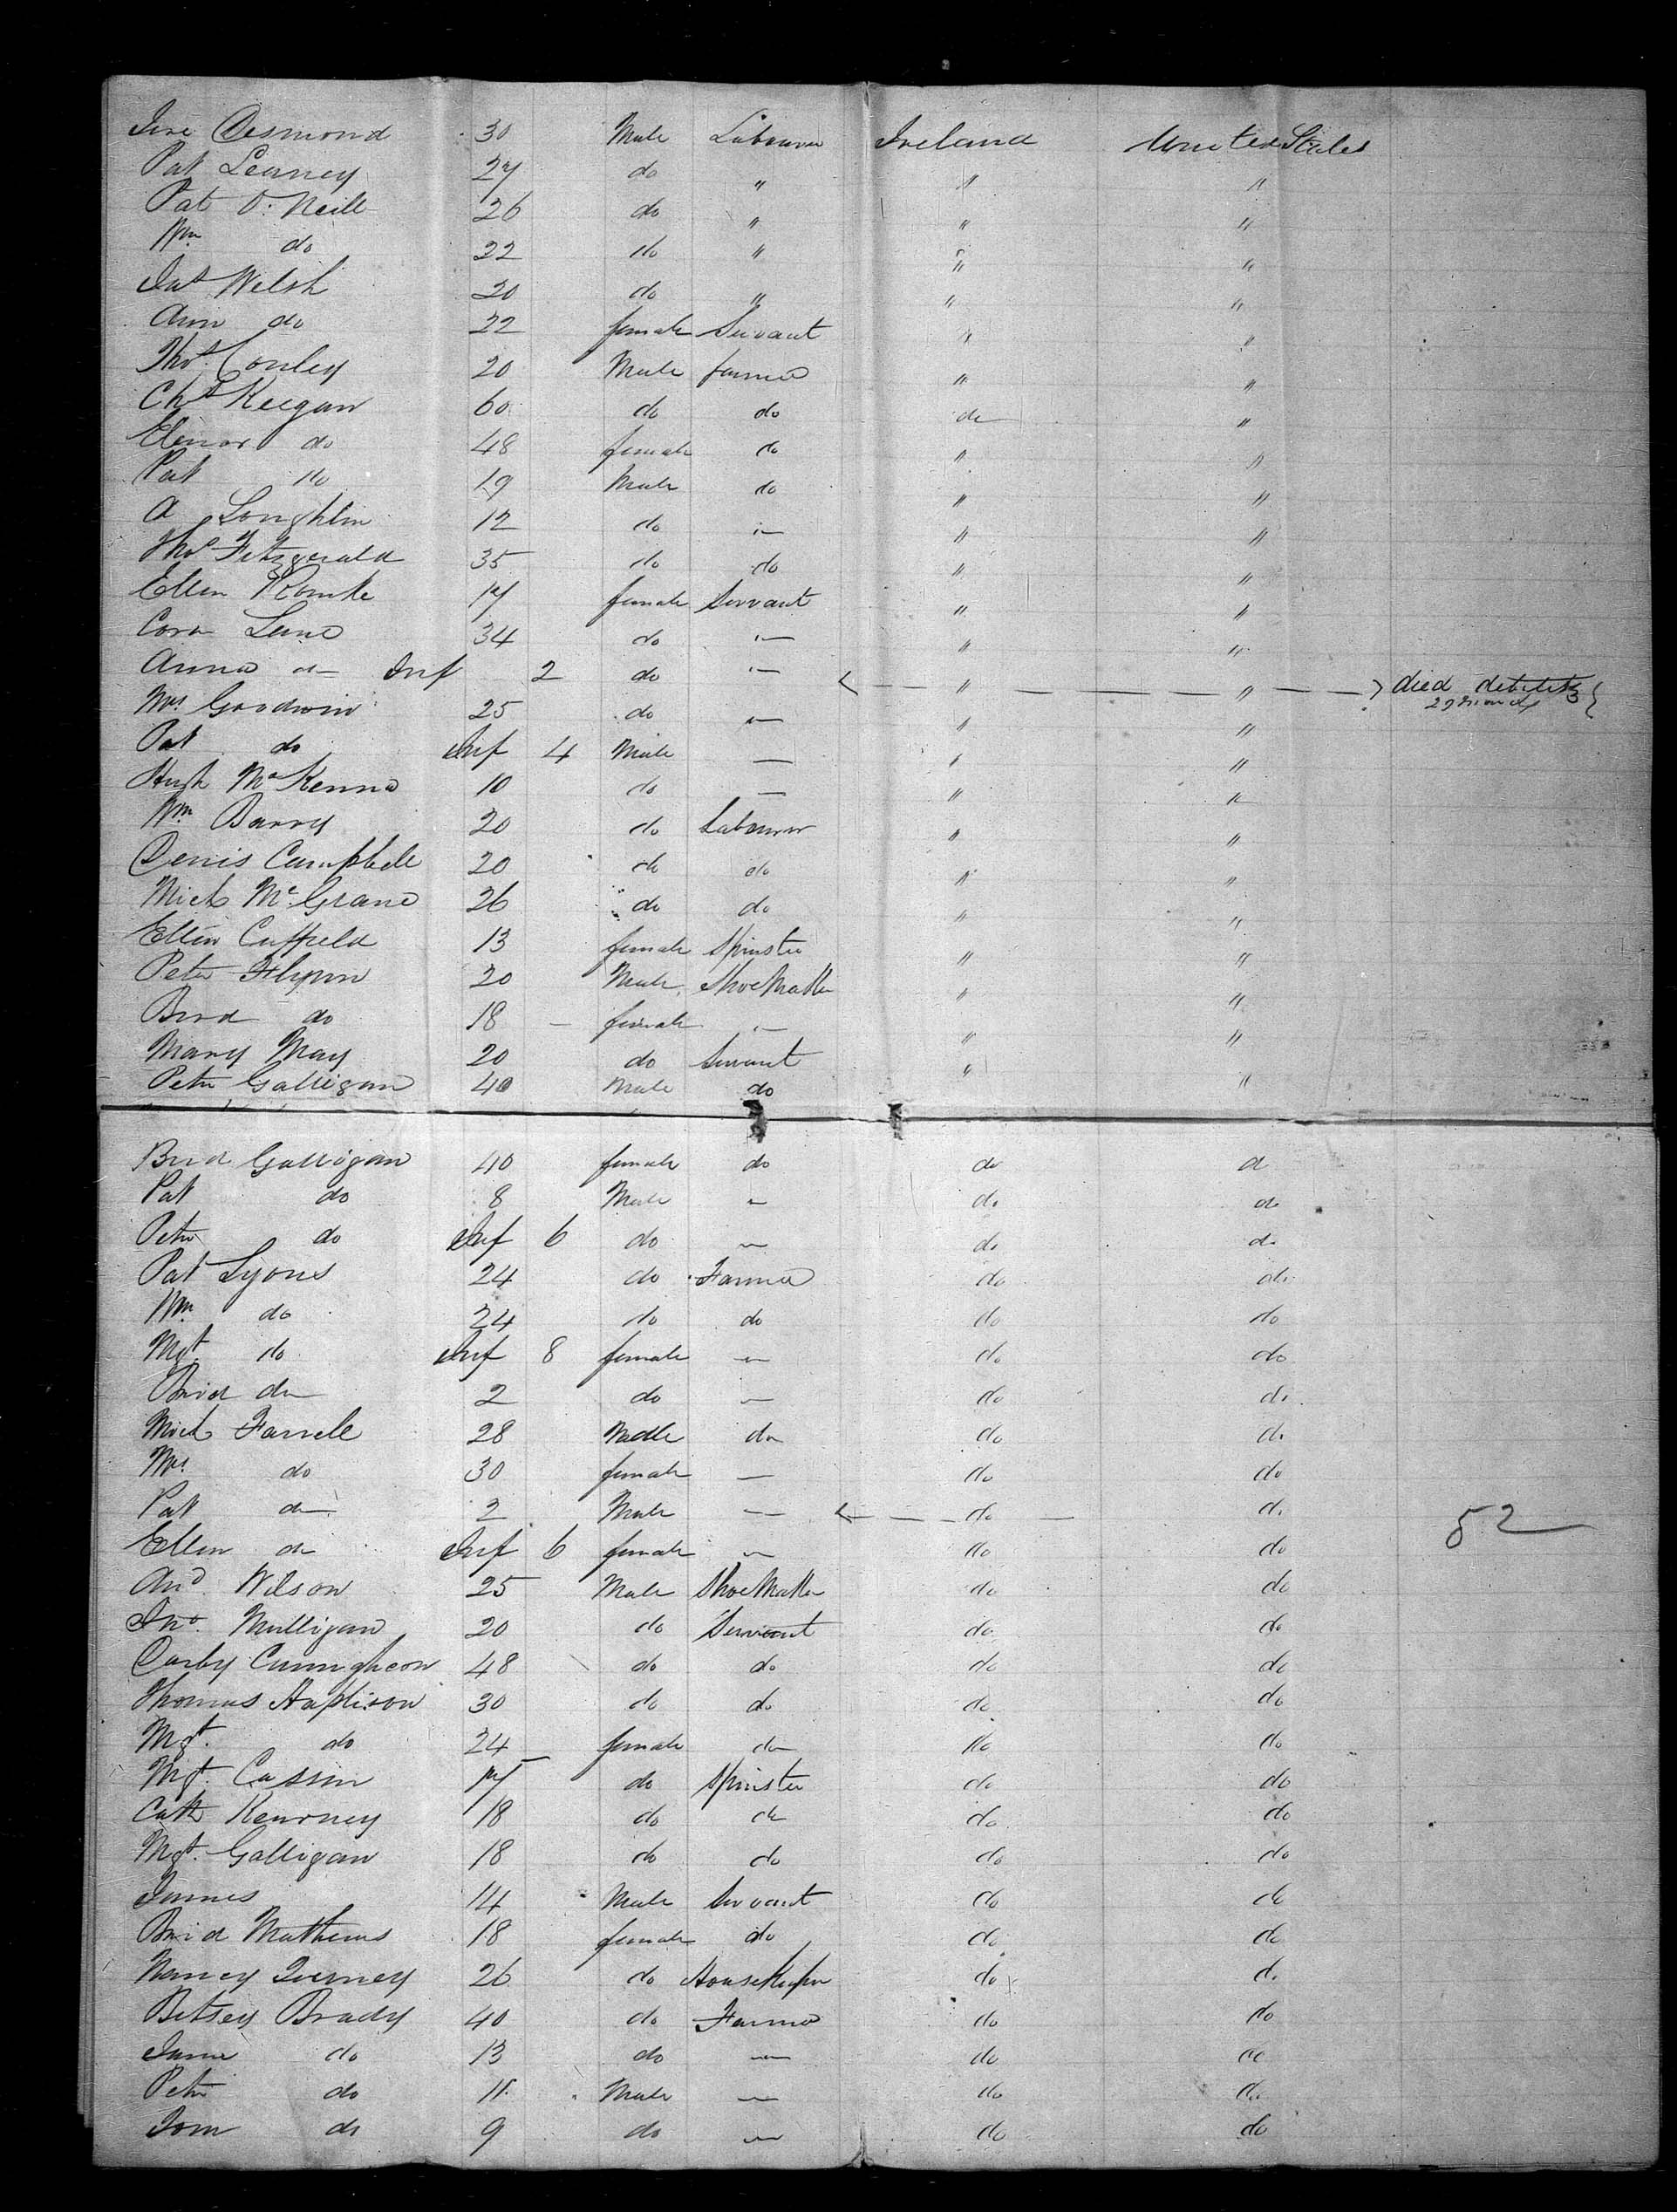 Jere Desmond 30 Male Labourer Ireland United States
Pat Leaney 27 do " " "
Pat O'Neill 26 do " " "
Wm do 22 do " " "
Jas Welsh 20 do " " "
Ann do 22 female Servant " "
Thos Conley 20 Male farmer " "
Chs Keegan 60 do do do "
Elenor do 48 female do " "
Pat do 19 Male do " "
A Loughlin 12 do — " "
Thos Fitzgerald 35 do do " "
Ellen Rourke 17 female Servant " "
Cora Lane 34 do — " "
Anna do Inf 2 do — " " died debility
Mrs Goodwin 25 do — " "
Pat do Inf 4 Male — " "
Hugh McKenna 10 do — " "
Wm Barry 20 do Labourer " "
Denis Campbell 20 do do " "
Mich McGrane 26 do do " "
Ellen Cuffield 13 female Spinster " "
Peter Flynn 20 Male ShoeMaker " "
Brid do 18 — female — " "
Mary May 20 do Servant " "
Peter Galligan 40 Male do "
Brid Galligan 40 female do do do
Pat do 8 Male — do do
Peter do Inf 6 do — do do
Pat Lyons 24 do Farmer do do
Wm do 24 do do do do
Mgt do Inf 8 female — do do
Brid do 2 do — do do
Mich Farrell 28 Male do do do
Mrs do 30 female — do do
Pat do 2 Male — do do 52
Ellen do Inf 6 female — do do
And Wilson 25 Male ShoeMaker do do
Jno. Mulligan 20 do Servant do do
Darby Cuningheon 48 do do do do
Thomas 30 do do do do
Mgt. do 24 female do do do
Mgt. Cassin 17 do Spinster do do
Cath Kearney 18 do do do do
Mgt. Galligan 18 do do do do
James 14 Male Servant do do
Brid Mathews 18 female do do do
Nancy 26 do HouseKeeper do do
Betsey Brady 40 do Farmer do do
Jane do 13 do — do do
Peter do 11 Male — do do
Tom do 9 do — do do